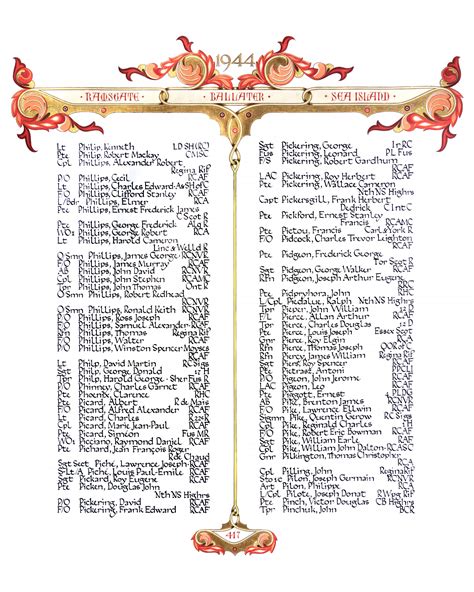 1944
RAMSGATE BALLATER SEA ISLAND
Lt Philp, Kenneth LDSH(RC)
Pte Philp, Robert Mackay CMSC
Cpl Phillips, Alexander Robert,
Regina Rif
P/O Phillips, Cecil RCAF
Lt Phillips, Charles Edward-As
P/O Phillips, Clifford Stanley RCAF
L/Bdr Phillips, Elmer RCA
Pte Phillips, Ernest Frederick James
C Scot R
Pte Phillips, George Frederick Alq R
WO1 Phillips, George Robert RCA
Lt Phillips, Harold Cameron
Linc & Welld R
O Smn Phillips, James George RCNVR
F/O Phillips, James Murray RCAF
AB Phillips, John David RCNVR
Cpl Phillips, John Stephen RCAMC
Tpr Phillips, John Thomas Ont R
O Smn Phillips, Robert Redhead
RCNVR
O Smn Phillips, Ronald Keith RCNVR
F/O Phillips, Ross Joseph RCAF
Rfn Phillips, Samuel Alexander Regina Rif
F/O Phillips, Walter RCAF
P/O Phillips, Winston RCAF
Lt Philp, David Martin RC Sigs
Sgt Philp, George Donald 12 H
Tpr Philp, Harold George - Sher Fus R
P/O Phinney, Charles Garnet RCAF
Pte Phoenix, Clarence RHC
Pte Picard, Albert R de Mais
F/O Picard, Alfred Alexander RCAF
Lt Picard, Charles R 22e R
Cpl Picard, Marie Jean-Paul RCAF
Pte Picard, Siméon Fus MR
WO2 Picciano, Raymond Daniel RCAF
Pte Pichard, Jean François Roger
R de Chaud
Sgt Sect Piché, Lawrence Joseph RCAF
S/Lt A Piché, Louis Paul-Emile RCAF
Sgt Pickard, Roy Eugene RCAF
Pte Picken, Douglas John
Nth NS Highrs
P/O Pickering, David RCAF
F/O Pickering, Frank Edward RCAF
Sgt Pickering, George Ir RC
Fus Pickering, Leonard PL Fus
F/O Pickering, Robert Gardhum
RCAF
LAC Pickering, Roy Herbert RCAF
Pte Pickering, Wallace Cameron
Nth NS Highrs
Capt Pickersgill, Frank Herbert
Dedrick C Int C
Pte Pickford, Ernest Stanley
Francis RCAMC
Pte Pictou, Francis Carl & York R
F/O Pidcock, Charles Trevor Leighton
RCAF
Pte Pidgeon, Frederick George
Tor Scot R
Sgt Pidgeon, George Walker RCAF
Rfn Pidgeon, Joseph Arthur Eugene
Pte Pidperyhora, John
L/Cpl Piedalue, Ralph Nth NS Highrs
Tpr Pieper, John William
F/L Pierce, Allan Arthur RCAF
Tpr Pierce, Charles Douglas
Pte Pierce, Winston Douglas Essex Scot
Gnr Pierce, Roy Elgin RCA
Rfn Pierce, Thomas Joseph QOR of C
Rfn Piercy, James William Regina Rif
Sgt Piers, Roy Spencer RCAF
Pte Pietrasz, Antoni PPCLI
P/O Pigeon, John Jerome RCAF
LAC Pigeon, Leo RCAF
Pte Piggott, Ernest 4 PLDG
AB Pike, Brenton James RCNVR
F/O Pike, Lawrence Ellwin RCAF
Sigmn Pike, Quentin Gerow RC Sigs
Cpl Pike, Reginald Charles
F/O Pike, Robert Eric Bowman RCAF
Sgt Pike, William Earle RCAF
Cpl Pike, William John Dalton RCASC
Gnr Pilkington, Thomas Christopher
RCA
Cpl Pilling, John Regina Rif
Sto 1c Pilon, Joseph Germain RCNVR
Art Pilon, Philippe RCA
L/Cpl Pilote, Joseph Donat R Wpg Rif
Pte Pinch, Victor Douglas CH of O
Tpr Pinchuk, John BCR
447